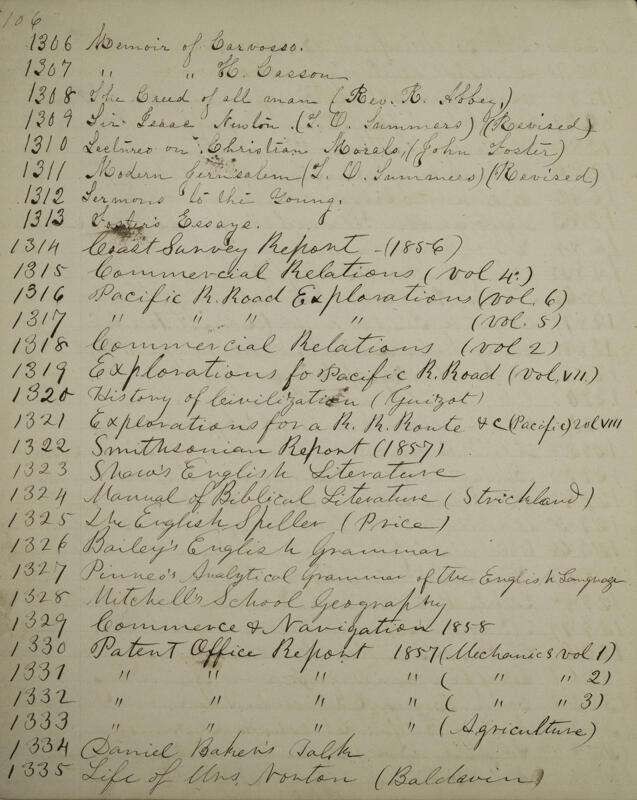 106
1306 Memoir of Carvosso.
1307 " " H. Casson
1308 The Creed of all man (Rev. R. Abbey,)
1309 Sir Isaac Newton. (T. O. Summers) (Revised)
1310 Lectures on Christian Morals, (John Foster)
1311 Modern Jerusalem (T. O. Summers) (Revised)
1312 Sermons to the Young.
1313 Foster's Essays.
1314 Coast Survey Report - (1856)
1315 Commercial Relations (vol 4.)
1316 Pacific R. Road Explorations (vol. 6)
1317 " " " " (vol. 5)
1318 Commercial Relations (vol 2)
1319 Explorations for Pacific R. Road (vol. VII)
1320 History of Civilization (Guizot)
1321 Explorations for a R. R. Route & C (Pacific) vol VIII
1322 Smithsonian Report (1857)
1323 Shaw's English Literature
1324 Manual of Biblical Literature (Strickland)
1325 The English Speller (Price)
1326 Bailey's English Grammar
1327 Pinneo's Analytical Grammar of the English Language
1328 Mitchell's School Geography
1329 Commerce & Navigation 1858
1330 Patent Office Report 1857 (Mechanics vol 1)
1331 " " " " ( " " 2)
1332 " " " " ( " " 3)
1333 " " " " (Agriculture)
1334 Daniel Baker's Talk
1335 Life of Mrs. Norton (Baldwin)